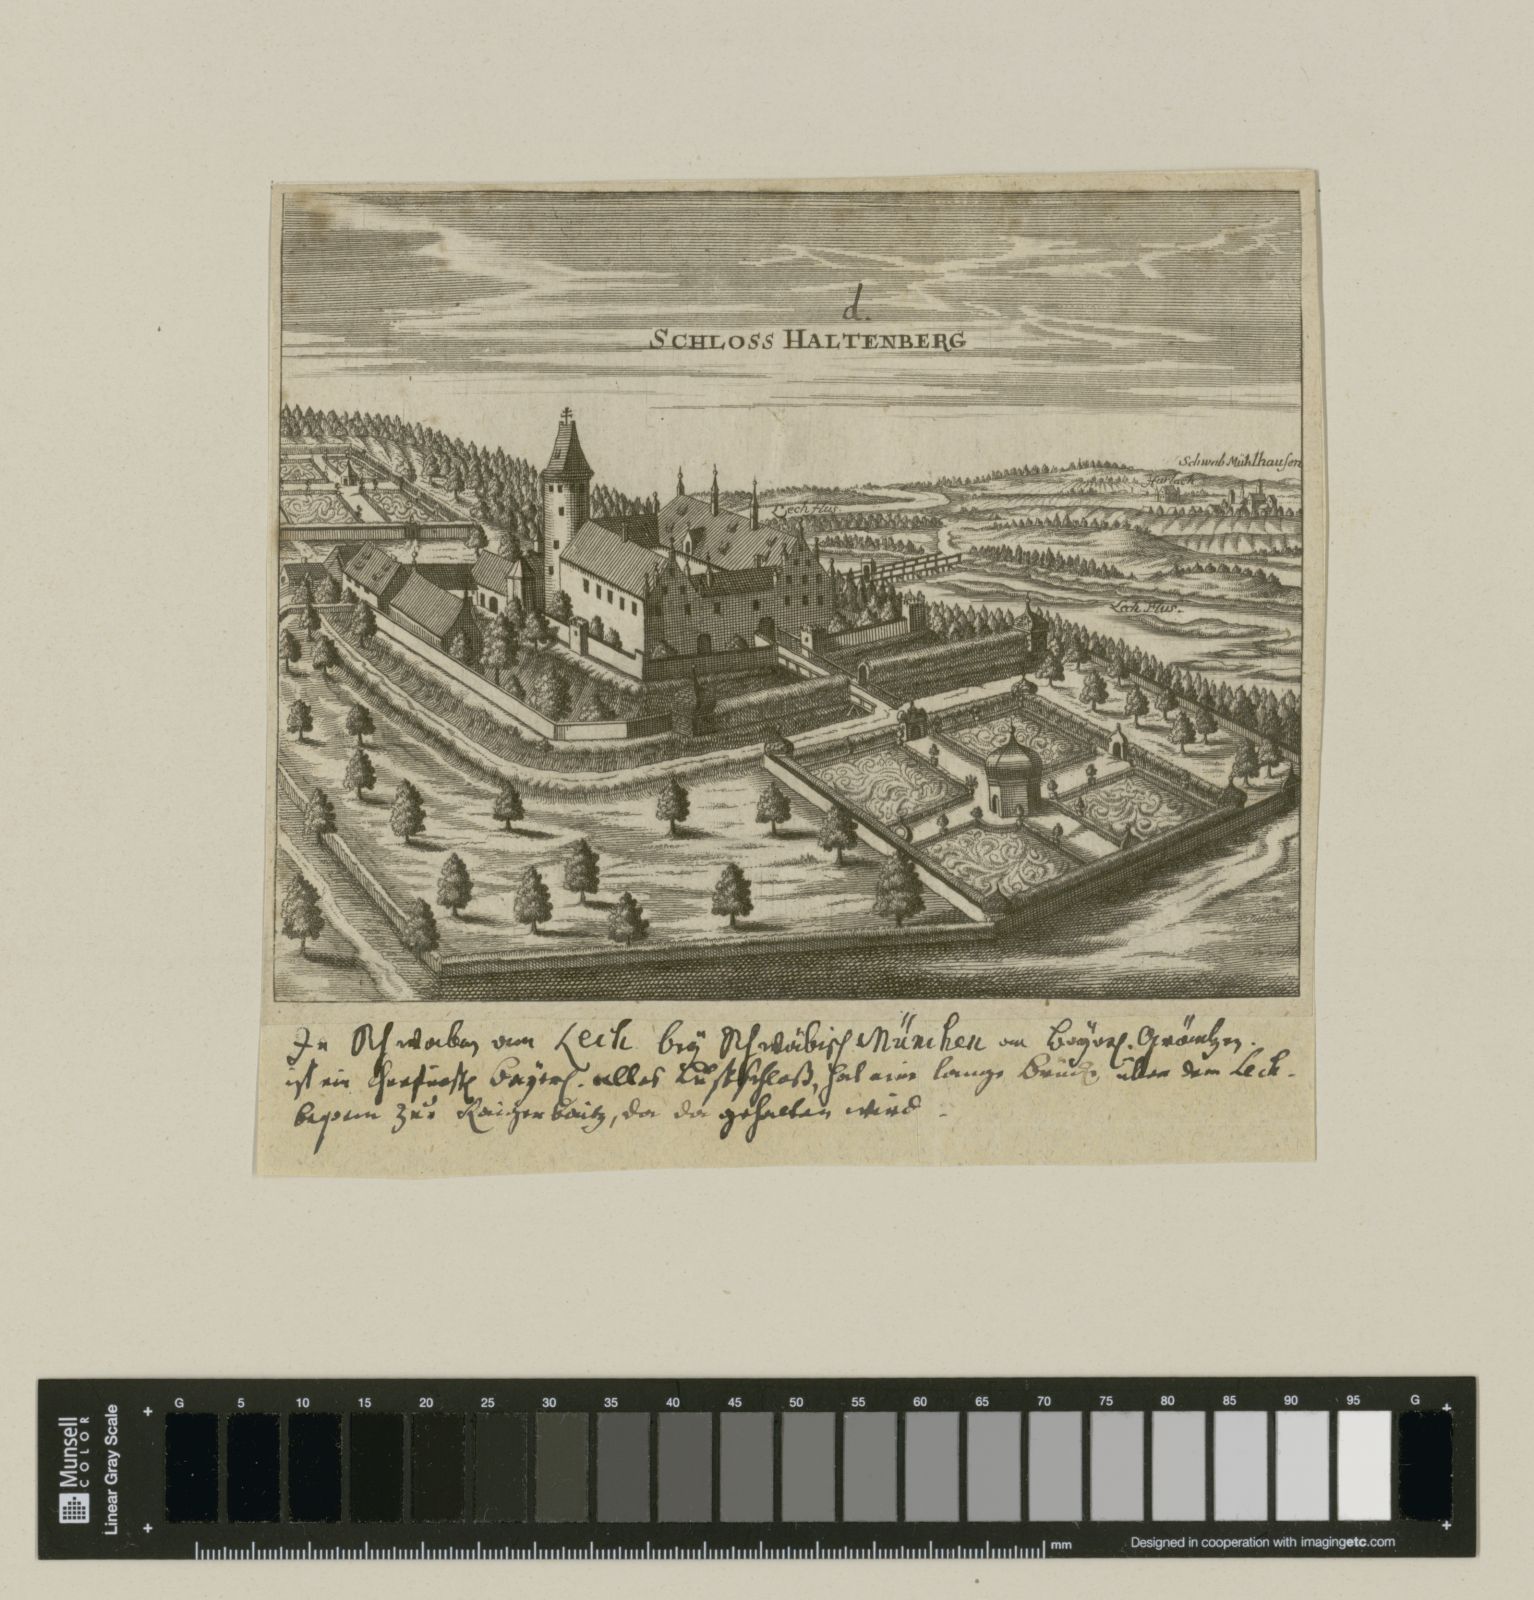 d.
SCHLOSS HALTENBERG
Schwab Mühlhausen
Hurlach
Lech flus.
Lech Flus.
In Schwaben am Lech bey Schwäbisch München an Bayers. Gräntzen.
ist ein Bayers. altes Lust Schloß, hat eine lange Brück über den Lech.
zur da da gehalten wird.
Munsell
COLOR
Linear Gray Scale
G 5 10 15 20 25 30 35 40 45 50 55 60 65 70 75 80 85 90 95 G
mm
Designed in cooperation with imagingetc.com